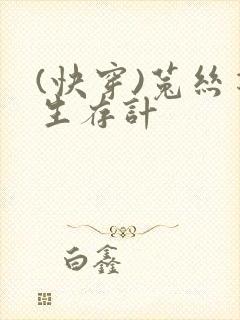 (快穿)菟絲
生存計
白鑫